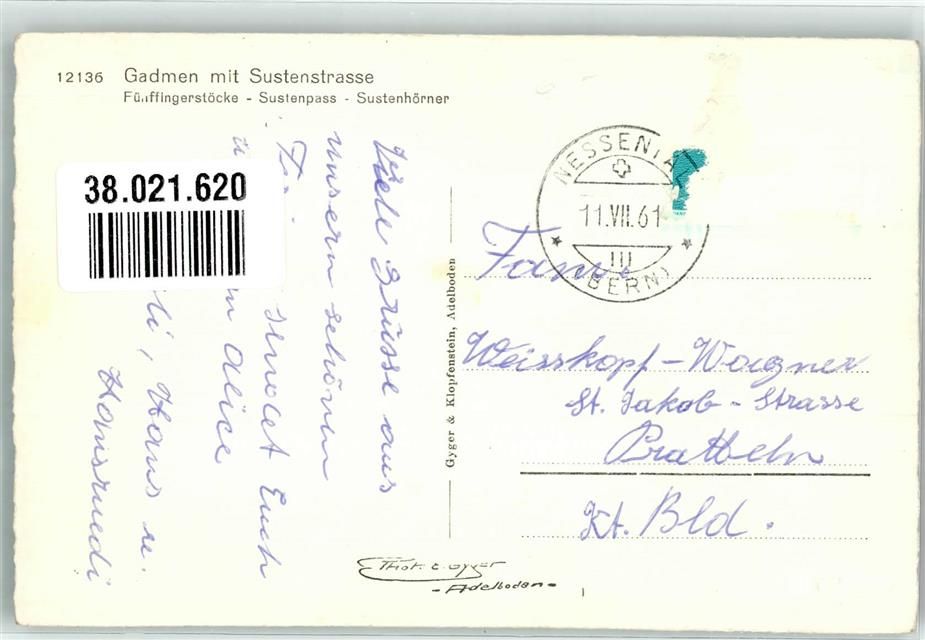 12136 Gadmen mit Sustenstrasse
Fünffingerstöcke - Sustenpass - Sustenhörner
38.021.620
Viele Grüsse aus
unsern schönen
sendet Euch
Alice
Hans u.
Hansruedi
Gyger & Klopfenstein, Adelboden
NESSENTAL
11.VII.61
(BERN)
Fam.
Weisskopf-Wagner
St. Jakob-Strasse
Pratteln
Kt. Bld.
Phot. E. Gyger
-Adelboden-